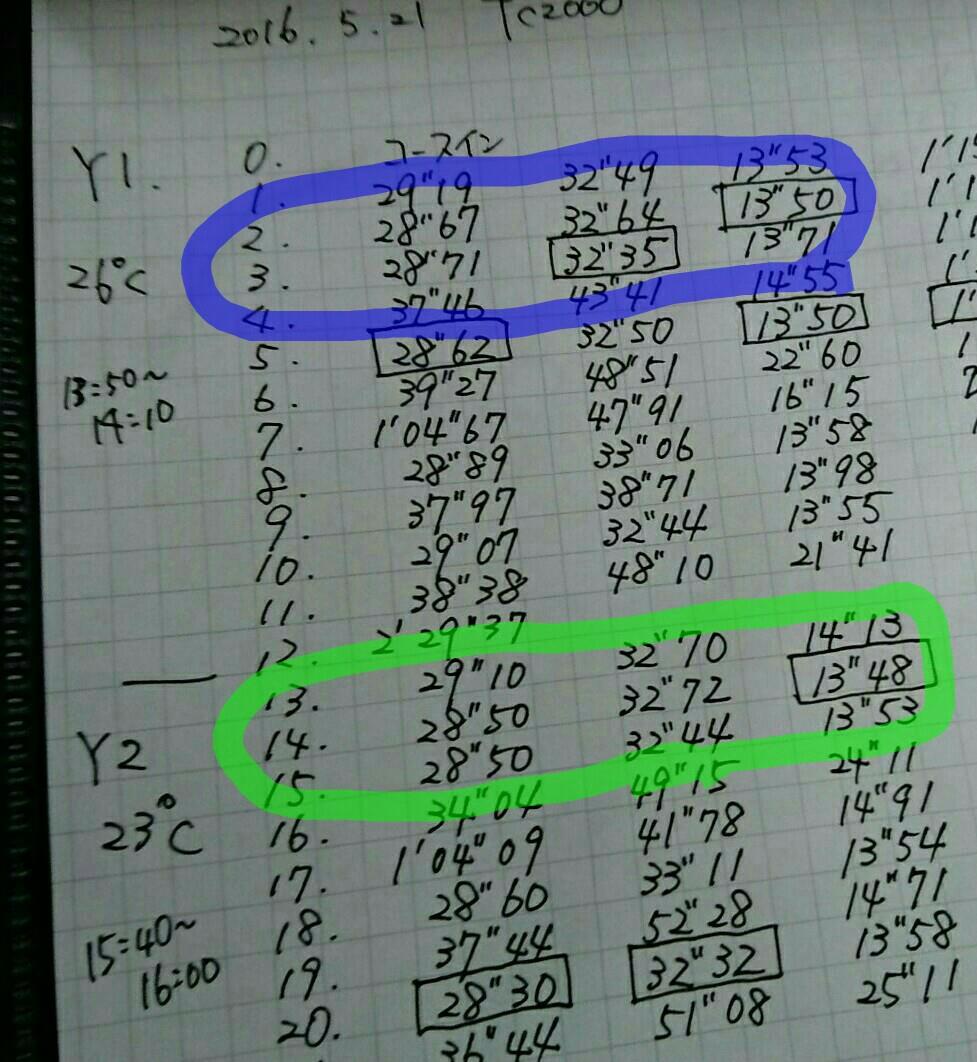 2016. 5. 21 TC2000
Y1. 0. コースイン
1. 29"19 32"49 13"53 1'15
2. 28"67 32"64 13"50 1'1
26°C 3. 28"71 32"35 13"71 1'1
4. 37"46 43"41 14"55
5. 28"62 32"50 13"50 1'
13:50~ 6. 39"27 48"51 22"60
14:10 7. 1'04"67 47"91 16"15
8. 28"89 33"06 13"58
9. 37"97 38"71 13"98
10. 29"07 32"44 13"55
11. 38"38 48"10 21"41
12. 2'29"37
13. 29"10 32"70 14"13
Y2 14. 28"50 32"72 13"48
15. 28"50 32"44 13"53
23°C 16. 34"04 49"15 24"11
17. 1'04"09 41"78 14"91
15:40~ 18. 28"60 33"11 13"54
16:00 19. 37"44 52"28 14"71
20. 28"30 32"32 13"58
36"44 51"08 25"11